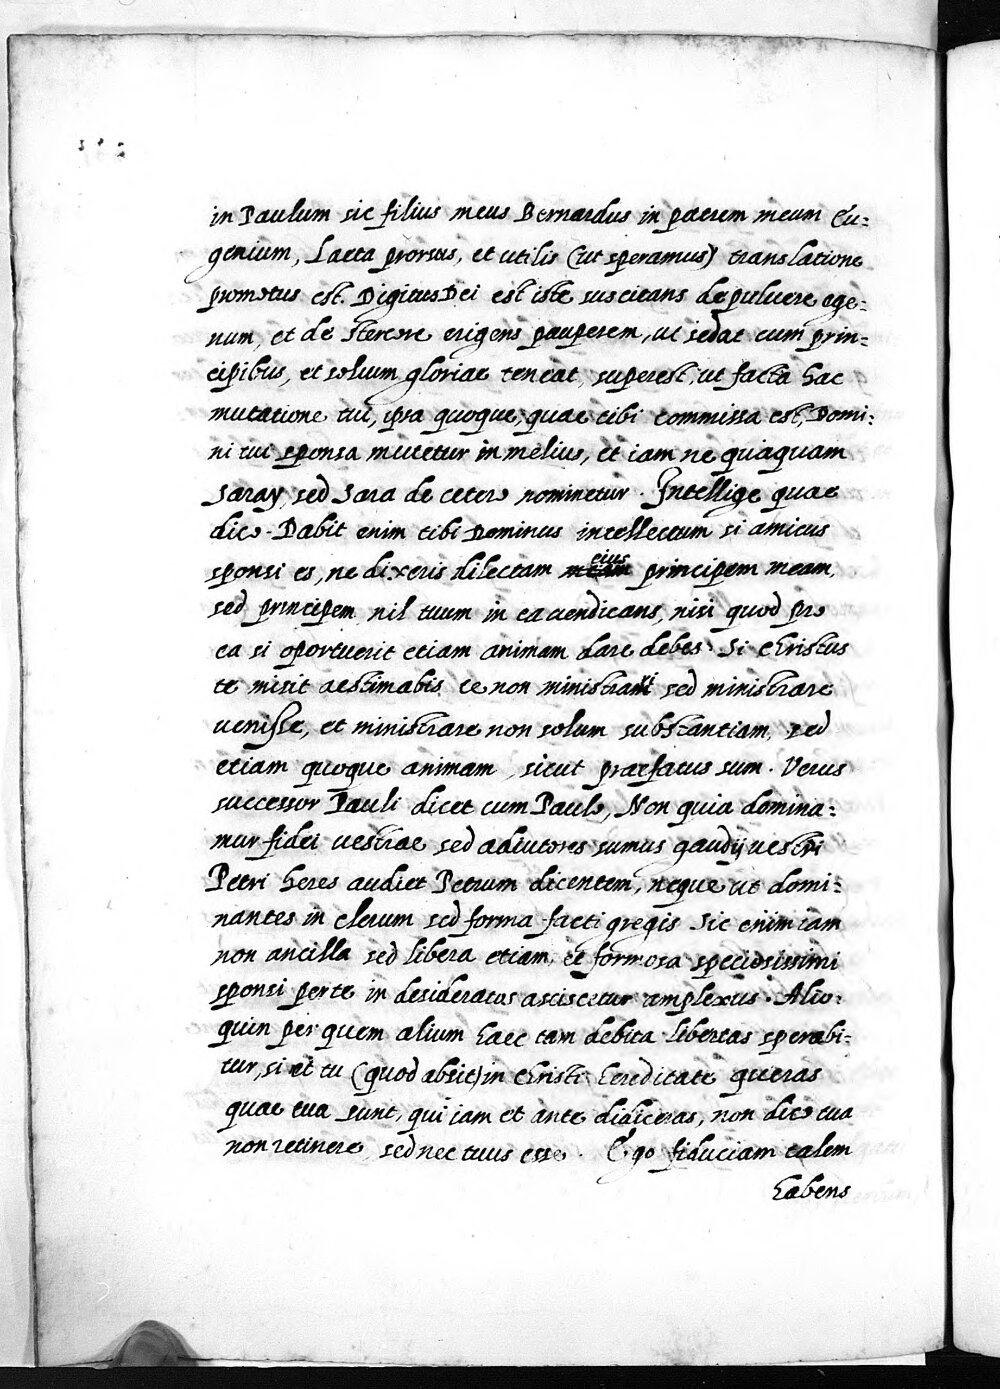 in Paulum sic filius meus Bernardus in patrem meum Eu:
genium, Laeta prorsus, et utilis (ut speramus) translatione
promotus est. Digitus Dei est iste suscitans de puluere ege:
num, et de stercore erigens pauperem, ut sedat cum prin:
cipibus, et solium gloriae teneat, superest, ut facta hac
mutatione tui, ipsa quoque, quae tibi commissa est, Domi:
ni tui sponsa mutetur in melius, et iam ne quaquam
saray, sed sara de cetero nominetur. Intellige quae
dico. Dabit enim tibi Dominus intellectum si amicus
eius
sponsi es, ne dixeris dilectam meam principem meam,
sed principem nil tuum in ea uendicans, nisi quod pro
ea si oportuerit etiam animam dare debes. Si Christus
te misit aestimabis te non ministrari sed ministrare
uenisse, et ministrare non solum substantiam, sed
etiam quoque animam, sicut praefatus sum. Verus
successor Pauli dicet cum Paulo, Non quia domina:
mur fidei uestrae sed adiutores sumus gaudij uestri
Petri heres audiet Petrum dicentem, neque ut domi:
nantes in clerum sed forma facti gregis Sic enim iam
non ancilla sed libera etiam, et formosa speciosissimi
sponsi per te in desideratos asciscetur amplexus. Alio:
quin per quem alium haec tam debita libertas sperabi:
tur, si et tu (quod absit) in Christi hereditate queras
quae tua sunt, qui iam et ante didiceras, non dico tua
non retinere, sed nec tuus esse. Ego fiduciam talem
habens